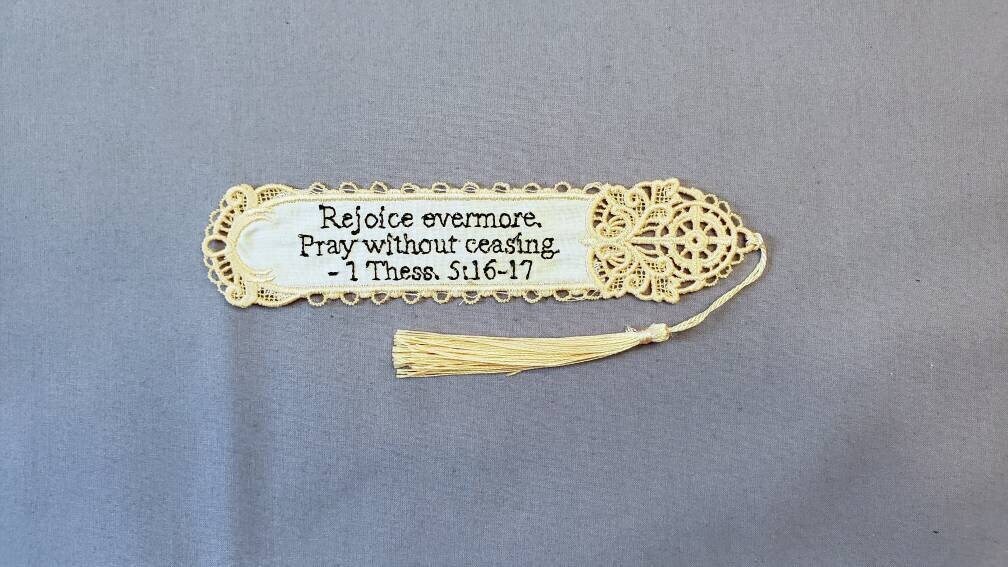 Rejoice evermore.
Pray without ceasing.
- 1 Thess. 5:16-17